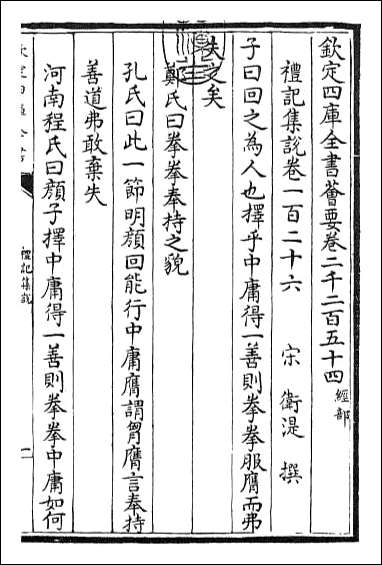 欽定四庫全書薈要卷二千二百五十四經部
禮記集說卷一百二十六 宋 衛湜 撰
子曰回之為人也擇乎中庸得一善則拳拳服膺而弗
失之矣
鄭氏曰拳拳奉持之貌
孔氏曰此一節明顔回能行中庸膺謂胷膺言奉持
善道弗敢棄失
河南程氏曰顔子擇中庸得一善則拳拳中庸如何
禮記集說